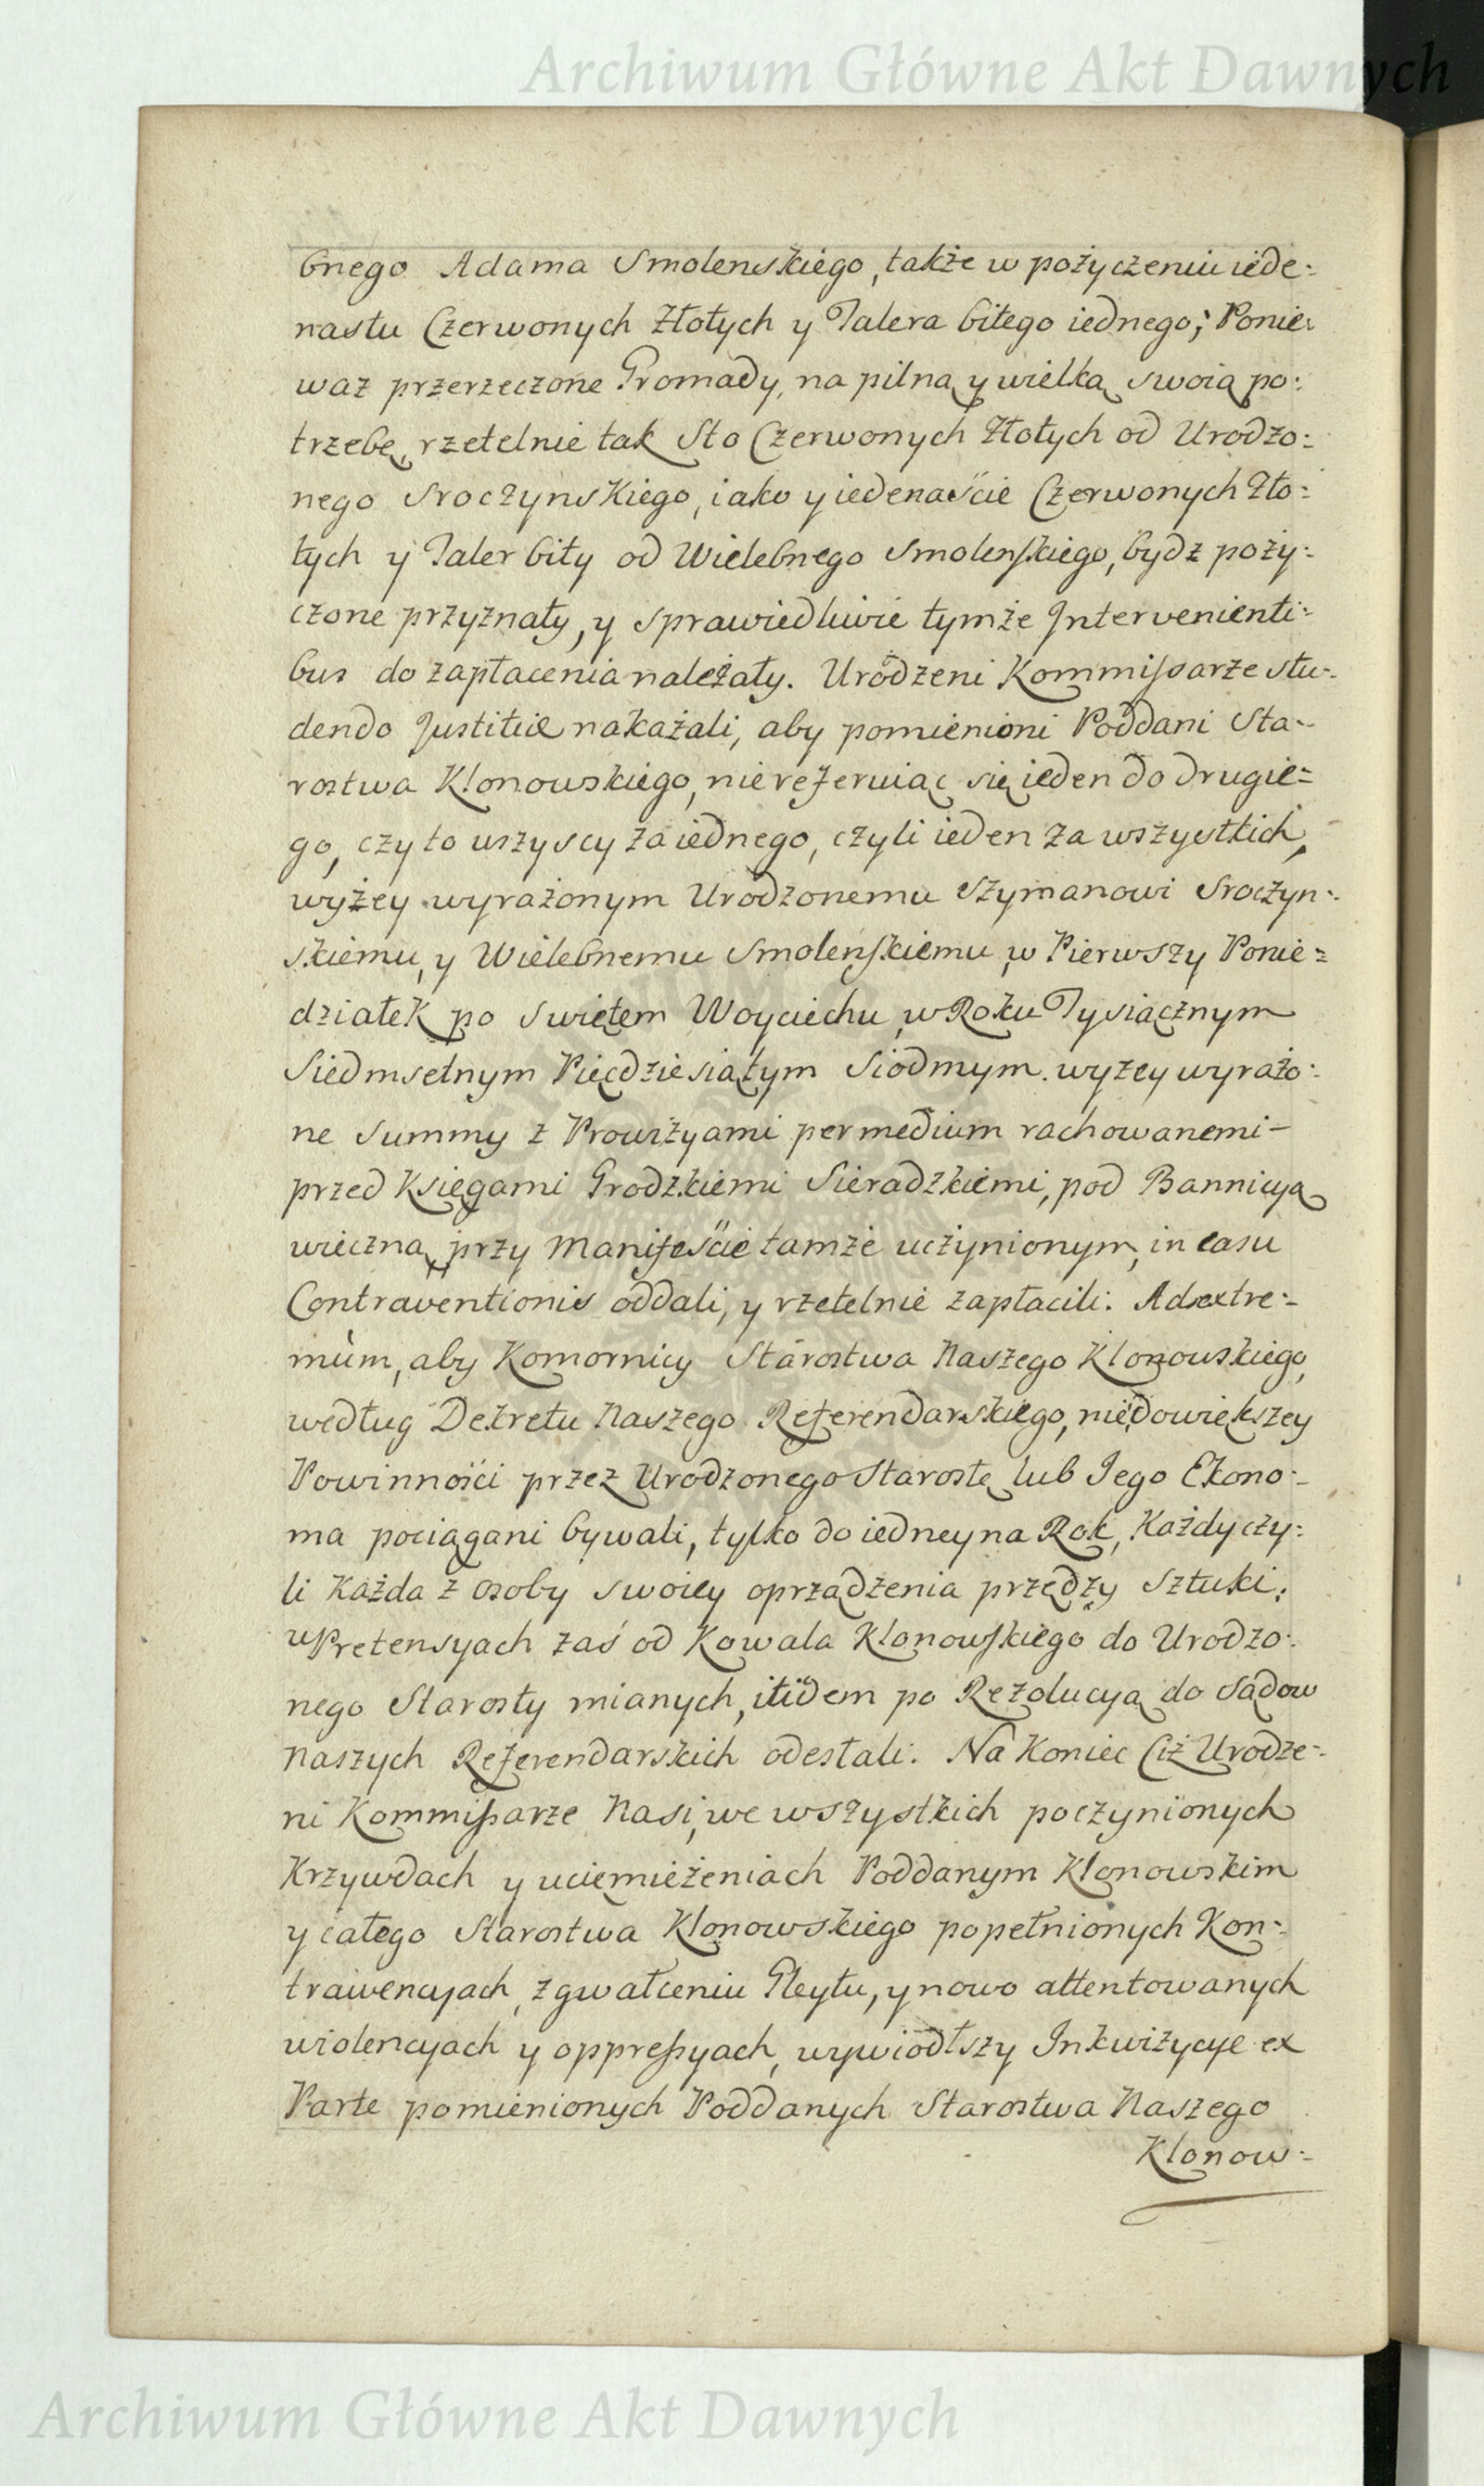 Archiwum Główne Akt Dawnych
bnego Adama Smolenskiego, także w pożyczeniu iede:
nastu Czerwonych Złotych y Talera bitego iednego; Ponie:
waz przerzeczone Gromady, na pilną y wielką swoią po:
trzebę, rzetelnie tak Sto Czerwonych Złotych od Urodzo:
nego Sroczynskiego, iako y iedenaście Czerwonych Zło:
tych y Taler bity od Wielebnego Smolenskiego, bydz poży:
czone przyznały, y sprawiedliwie tymże Intervenienti:
bus do zapłacenia należały. Urodzeni Kommissarze stu:
dendo Justitiæ nakażali, aby pomienioni Poddani Sta:
rostwa Klonowskiego, nie referuiąc się ieden do drugie=
go, czy to wszyscy za iednego, czyli ieden za wszystkich,
wyżey wyrażonym Urodzonemu Szymanowi Sroczyn:
skiemu, y Wielebnemu Smolenskiemu, w Pierwszy Ponie=
działek po Swiętem Woyciechu, w Roku Tysiącznym
Siedmsetnym Pięcdziesiątym Siodmym. wyżey wyrażo:
ne Summy z Prowizyami per medium rachowanemi-
przed Księgami Grodzkiemi Sieradzkiemi, pod Bannicyą
wieczną, przy Manifeście tamże uczynionym, in casu
Contraventionis oddali, y rzetelnie zapłacili. Ad extre:
mùm, aby Komornicy Starostwa Naszego Klonowskiego,
według Dekretu Naszego Referendarskiego, nie do większey
Powinności przez Urodzonego Starostę lub Jego Ekono:
ma pociągani bywali, tylko do iedney na Rok, Każdy czy:
li Każda z osoby swoiey oprządzenia przędzy Sztuki;
w Pretensyach zaś od Kowala Klonowskiego do Urodzo:
nego Starosty mianych, itidem po Rezolucyą do Sądow
Naszych Referendarskich odesłali. Na Koniec Ciż Urodze:
ni Kommissarze Nasi, we wszystkich poczynionych
Krzywdach y uciemiężeniach Poddanym Klonowskim
y całego Starostwa Klonowskiego popełnionych Kon:
trawencyach, zgwałceniu Gleytu, y nowo attentowanych
wiolencyach y oppressyach, wywiodłszy Inkwizycye ex
Parte pomienionych Poddanych Starostwa Naszego
Klonow:
Archiwum Główne Akt Dawnych